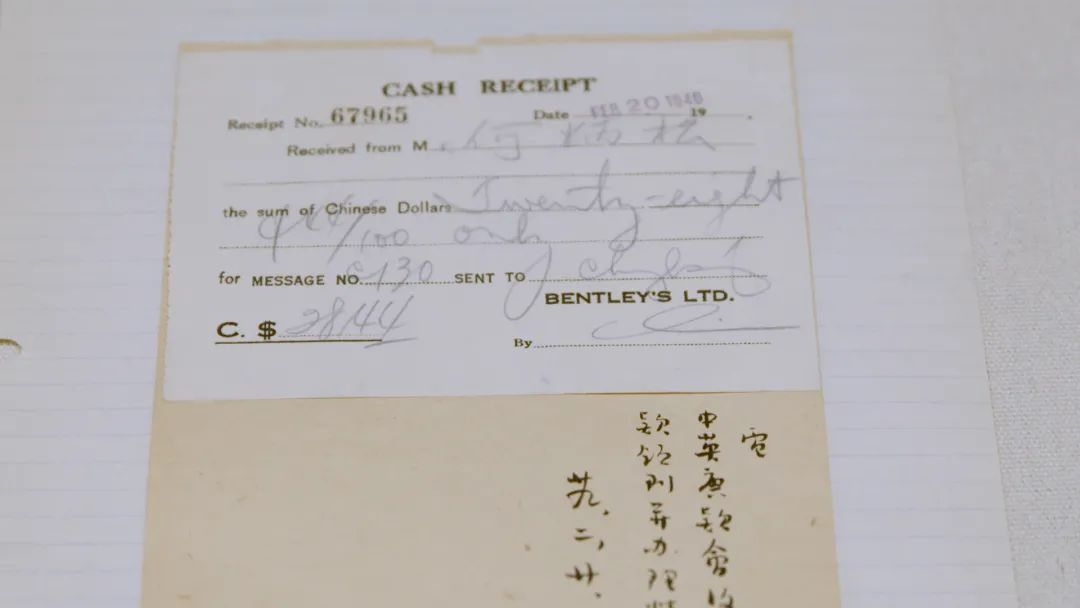 CASH RECEIPT
Receipt No. 67965 Date FEB 20 1940 19
Received from M. 何炳松
the sum of Chinese Dollars Twenty-eight
44/100 only
for MESSAGE NO. C130 SENT TO Chungking
BENTLEY'S LTD.
C. $ 28.44
By
電
中英庚款會
款 并办理
廿九、二、廿、